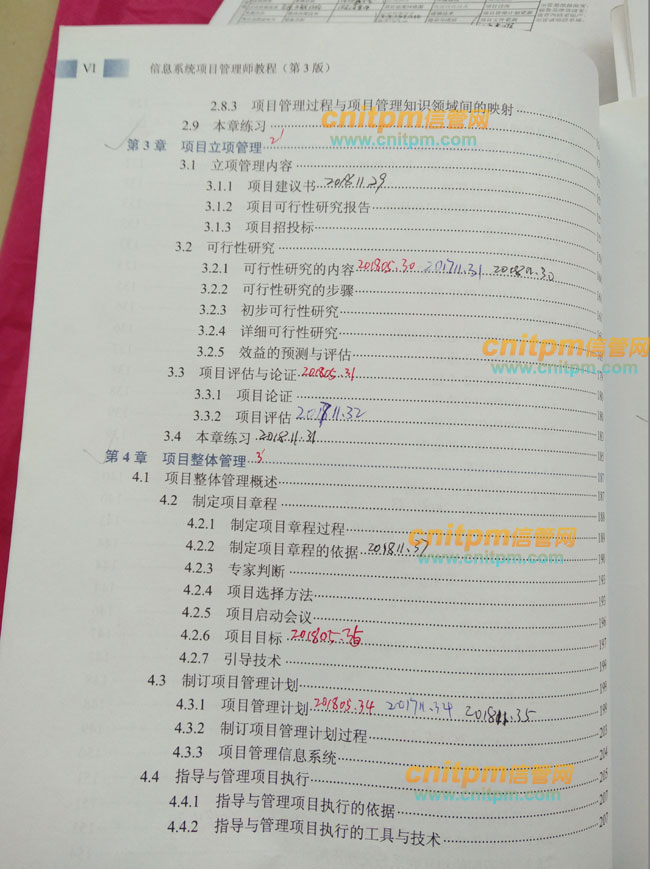 VI 信息系统项目管理师教程（第3版）
2.8.3 项目管理过程与项目管理知识领域间的映射
cnitpm信管网
2.9 本章练习
www.cnitpm.com
第3章 项目立项管理 2'
3.1 立项管理内容
3.1.1 项目建议书 2018.11.29
3.1.2 项目可行性研究报告
3.1.3 项目招投标
3.2 可行性研究
3.2.1 可行性研究的内容 201805.30 201711.31 201811.30
3.2.2 可行性研究的步骤
3.2.3 初步可行性研究
3.2.4 详细可行性研究
cnitpm信管网
3.2.5 效益的预测与评估
www.cnitpm.com
3.3 项目评估与论证 201805.31
3.3.1 项目论证
3.3.2 项目评估 201711.32
3.4 本章练习 201811.31 185
第4章 项目整体管理 3' 187
4.1 项目整体管理概述 187
4.2 制定项目章程 188
4.2.1 制定项目章程过程 189
cnitpm信管网
4.2.2 制定项目章程的依据 201811.37 190
www.cnitpm.com
4.2.3 专家判断 193
4.2.4 项目选择方法 195
4.2.5 项目启动会议 196
4.2.6 项目目标 201805.35 197
4.2.7 引导技术 199
4.3 制订项目管理计划 199
4.3.1 项目管理计划 201805.34 201711.34 201811.35 199
4.3.2 制订项目管理计划过程 203
4.3.3 项目管理信息系统 204
cnitpm信管网
4.4 指导与管理项目执行 205
www.cnitpm.com
4.4.1 指导与管理项目执行的依据 207
4.4.2 指导与管理项目执行的工具与技术 207